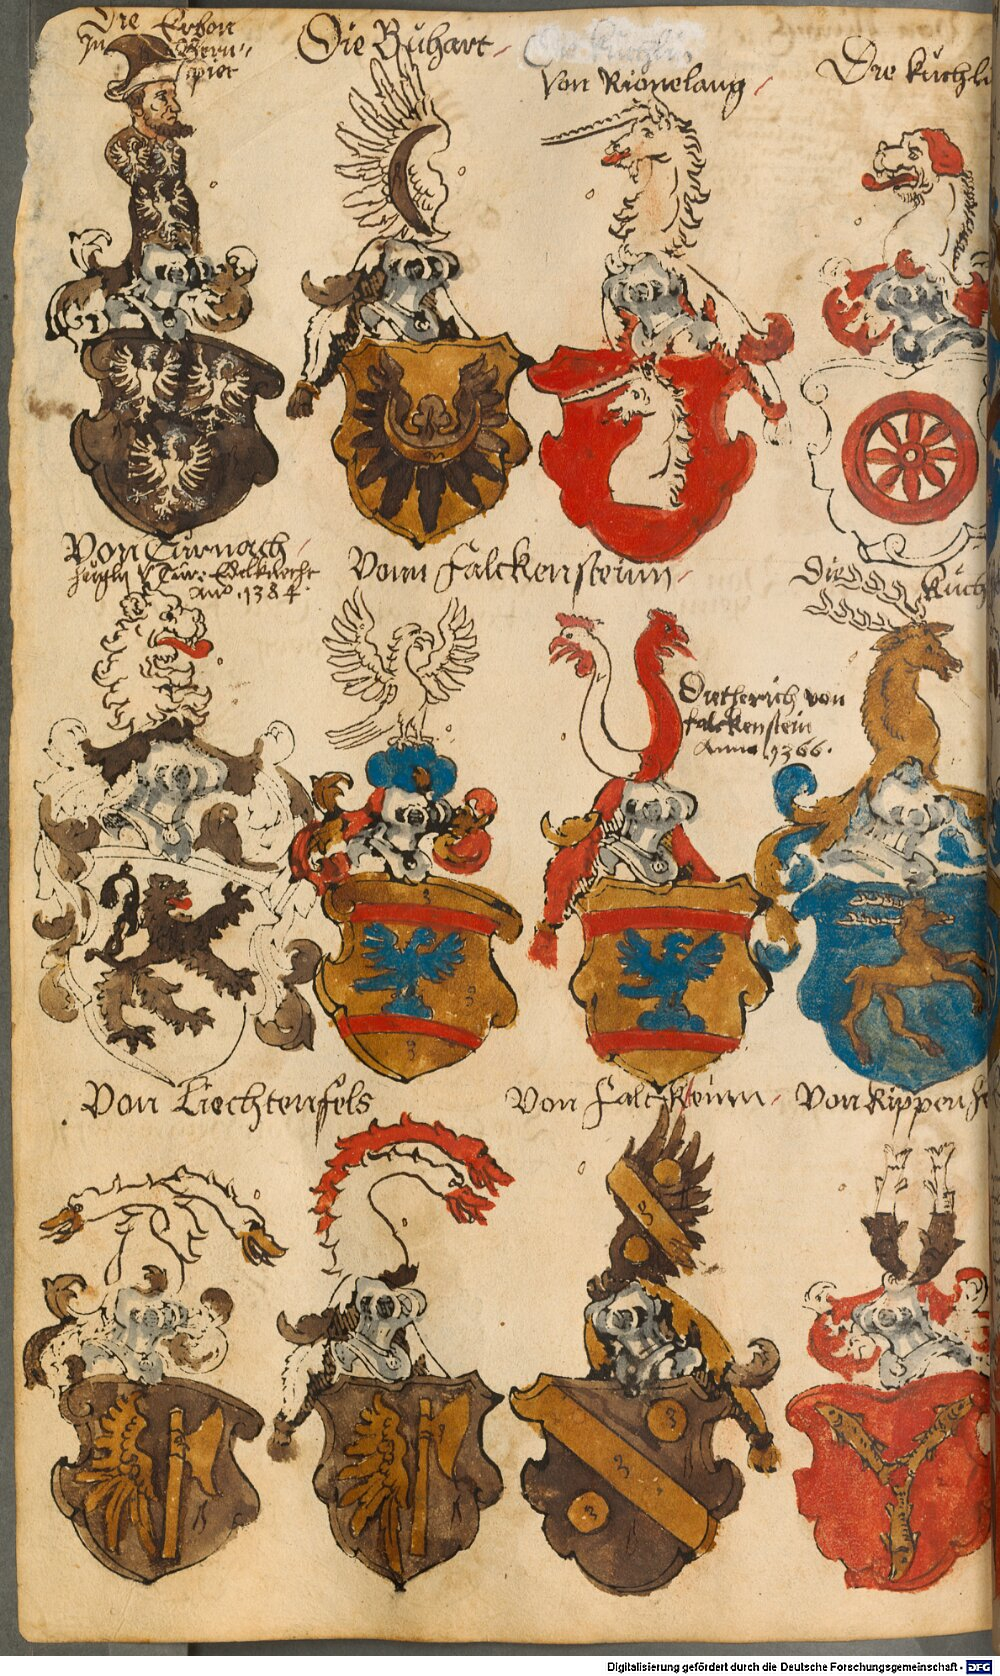 Die Erbon
Zu
Die Buhart
Von Rionelaug
Die Kuchli
Von Turnach
Edelknecht
Ano 1384
Vonn Falckensteinn
Die Kuch
Dietherich von
falckenstein
Anno 1366.
Von Liechtenfels
Von Falcksteinn
Von Rippen
Digitalisierung gefördert durch die Deutsche Forschungsgemeinschaft - DFG